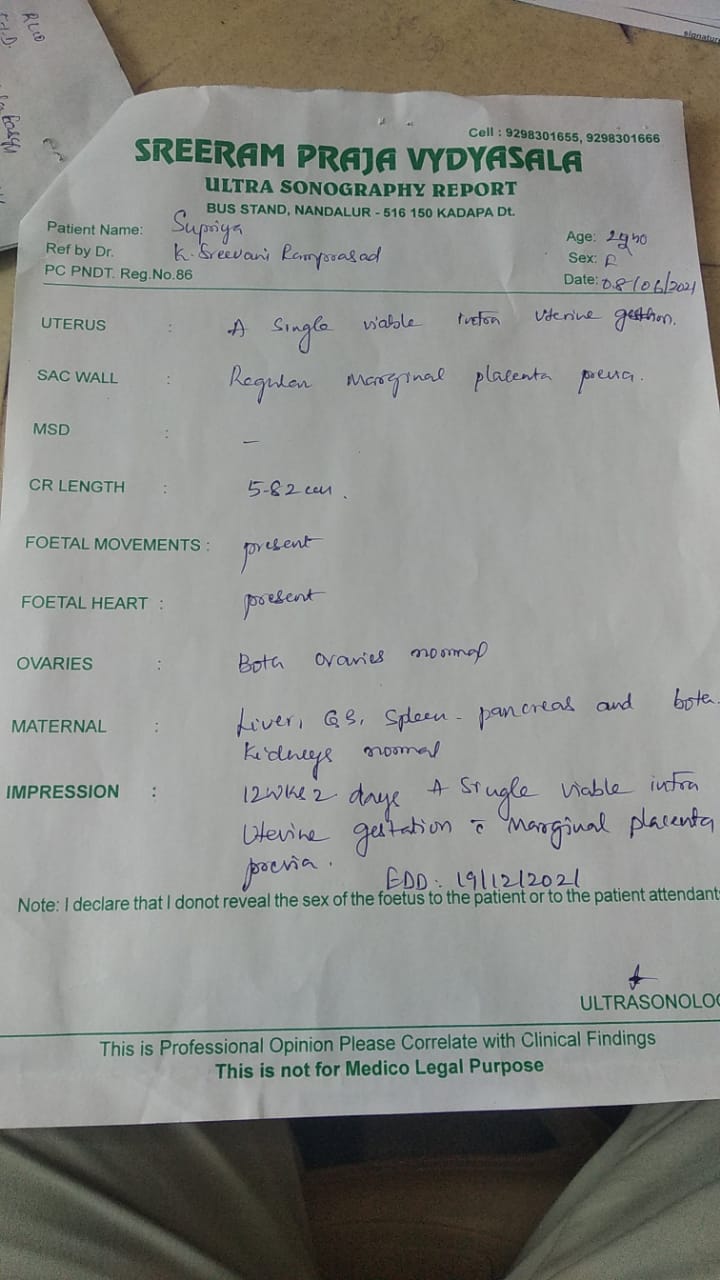 RLLO
signature
Cell : 9298301655, 9298301666
SREERAM PRAJA VYDYASALA
ULTRA SONOGRAPHY REPORT
BUS STAND, NANDALUR - 516 150 KADAPA Dt.
Patient Name: Supriya
Age:
Ref by Dr. K. Sreevani Ramprasad
Sex:
PC PNDT. Reg.No.86
Date: 08/06/2021
UTERUS : A Single viable Uterine
SAC WALL : Regular Marginal placenta
MSD : —
CR LENGTH : 5-82 cm.
FOETAL MOVEMENTS : present
FOETAL HEART : present
OVARIES : Both ovaries normal
MATERNAL : Liver, GB, Spleen - pancreas and both
Kidneys normal
IMPRESSION : 12wks 2 days A Single viable intra
Uterine gestation c̄ Marginal placenta
previa. EDD: 19/12/2021
Note: I declare that I donot reveal the sex of the foetus to the patient or to the patient attendant
ULTRASONOLO
This is Professional Opinion Please Correlate with Clinical Findings
This is not for Medico Legal Purpose